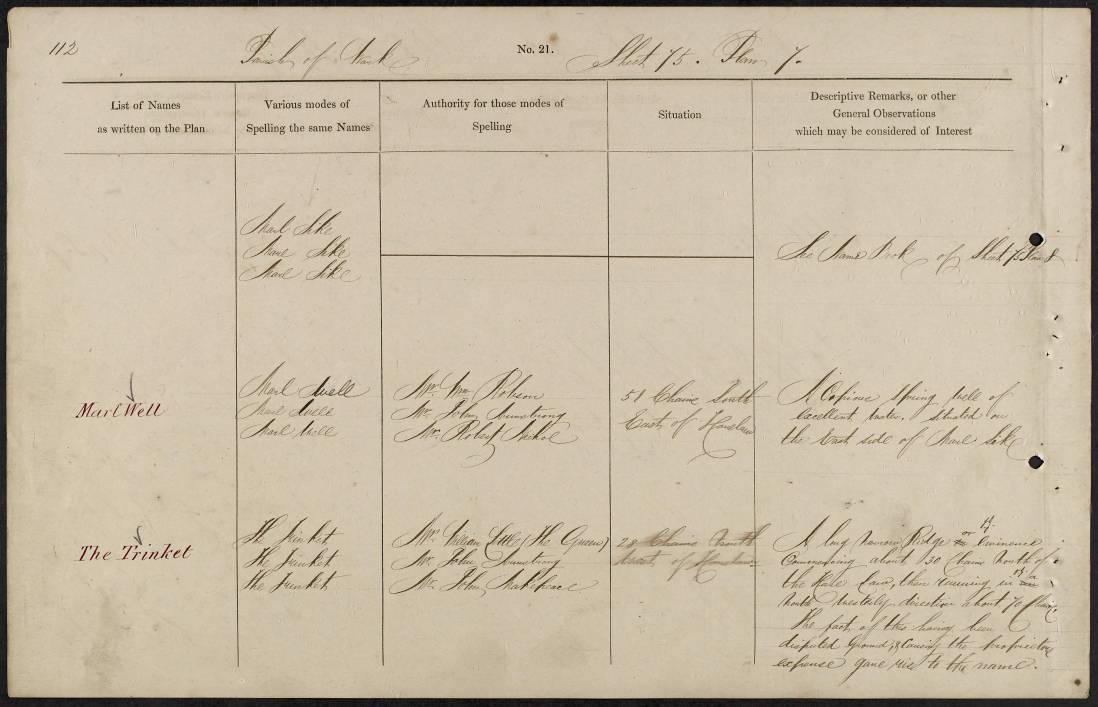 112
Parish of
No. 21.
Sheet 75. Plan 7.
List of Names
as written on the Plan
Various modes of
Spelling the same Names
Authority for those modes of
Spelling
Situation
Descriptive Remarks, or other
General Observations
which may be considered of Interest
Marl Sike
Marl Sike
Marl Sike
See Name Book of Sheet 75 Plan 8
Marl Well
Marl Well
Marl Well
Marl Well
Mr. Wm. Robson
Mr. John Armstrong
Mr. Robert Nichol
51 Chains South
East of
A Copious Spring well of
excellent water, situated on
the East side of Marl Sike
The Trinket
The Trinket
The Trinket
The Trinket
Mr. William Little (The Queen)
Mr. John Armstrong
Mr. John Makepeace
28 Chains North
of
A long narrow Ridge or Eminence
Commencing about 30 Chains North of
the Law, then running in a
North Westerly direction about 70 Chains.
The fact of this having been
disputed Ground, & Causing the proprietors
expense gave rise to the name.